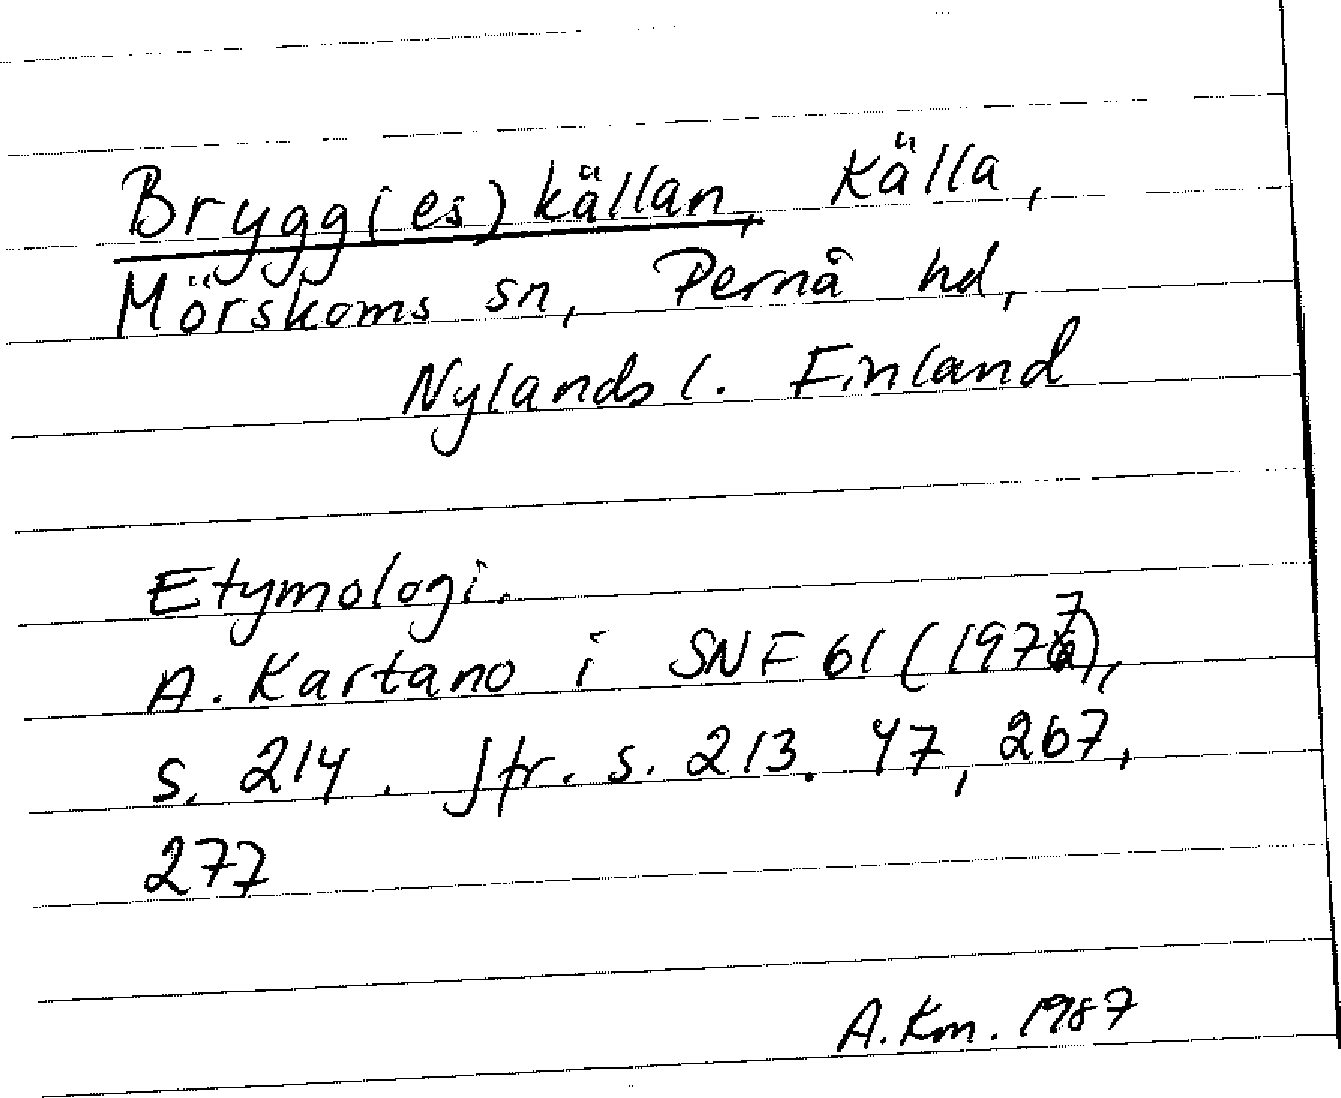 Brygg(es)källan, Källa,
Mörskoms sn, Pernå hd,
Nylands l. Finland
Etymologi.
A. Kartano i SNF 61 (1977),
s. 214. Jfr. s. 213. 47, 267,
277
A. Km. 1987